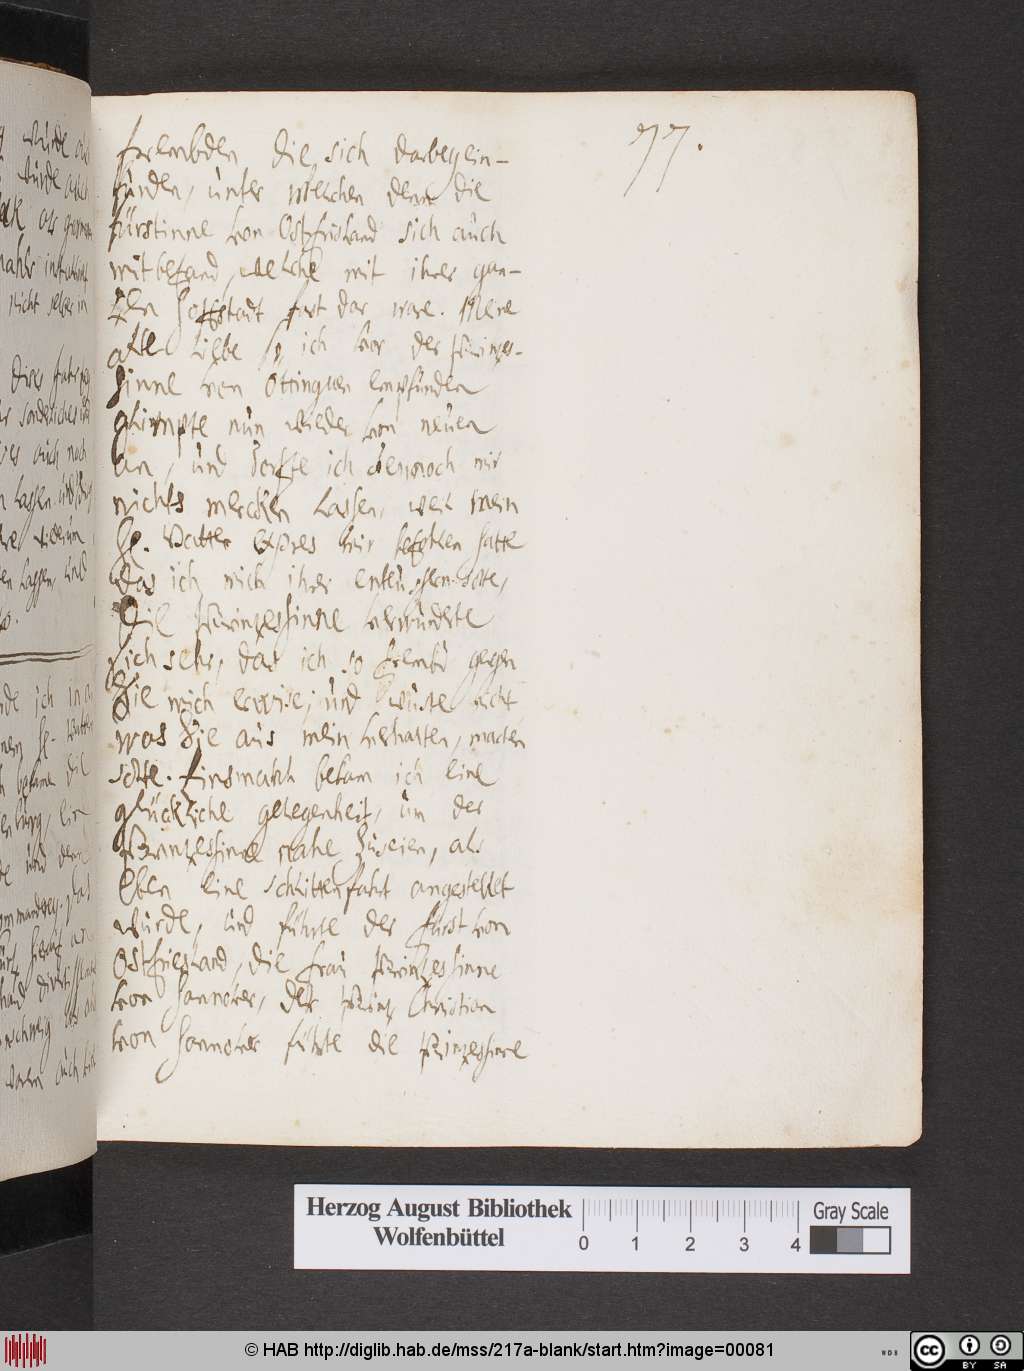 77.
frembden die sich darbey ein-
funden, unter welchen denn die
fürstinne von Ostfrisland sich auch
mit befand, welche mit ihrer gan-
tzen hoffstadt fort dar ware. Meine
alte liebe so ich vor der Printzes-
sinne von Ottingen empfunden
glimpte nun wieder von neuen
an, und dorfte ich dennoch mir
nichts mercken lassen, weil mein
H. Vatter expres mir befohlen hatte
das ich mich ihrer entäussern solte,
Die Printzessinne verwundete
sich sehr, das ich so frembd gegen
Sie mich erwise, und wuste nicht
was Sie aus mein verhalten, machen
solte. Einsmahls bekam ich eine
glückliche gelegenheit, um der
Printzessinne nahe zu seien, als
Eben eine schlittenfahrt angestellet
wurde, und führte der fürst von
Ostfriesland, die frau Printzessinne
von Hannover, der Printz Christian
von Hannover führte die Printzessinne
Herzog August Bibliothek
Wolfenbüttel
0 1 2 3 4
Gray Scale
© HAB http://diglib.hab.de/mss/217a-blank/start.htm?image=00081
WDB
cc BY SA